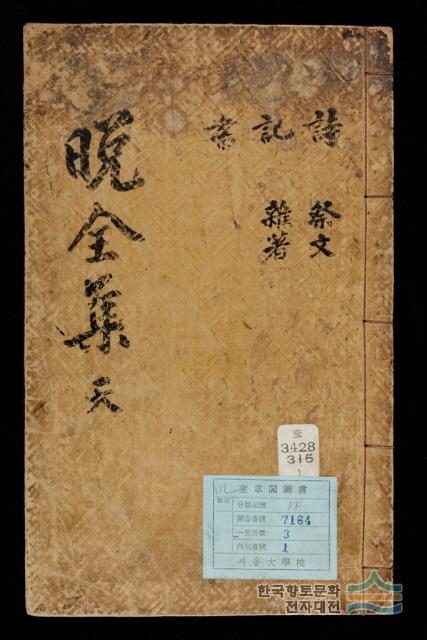 詩 祭文
記 雜著
書
晩全集 天
奎
3428
315
1
奎章閣圖書
分類記號
圖書番號 7164
冊數 3
內別番號 1
서울大學校
한국향토문화
전자대전